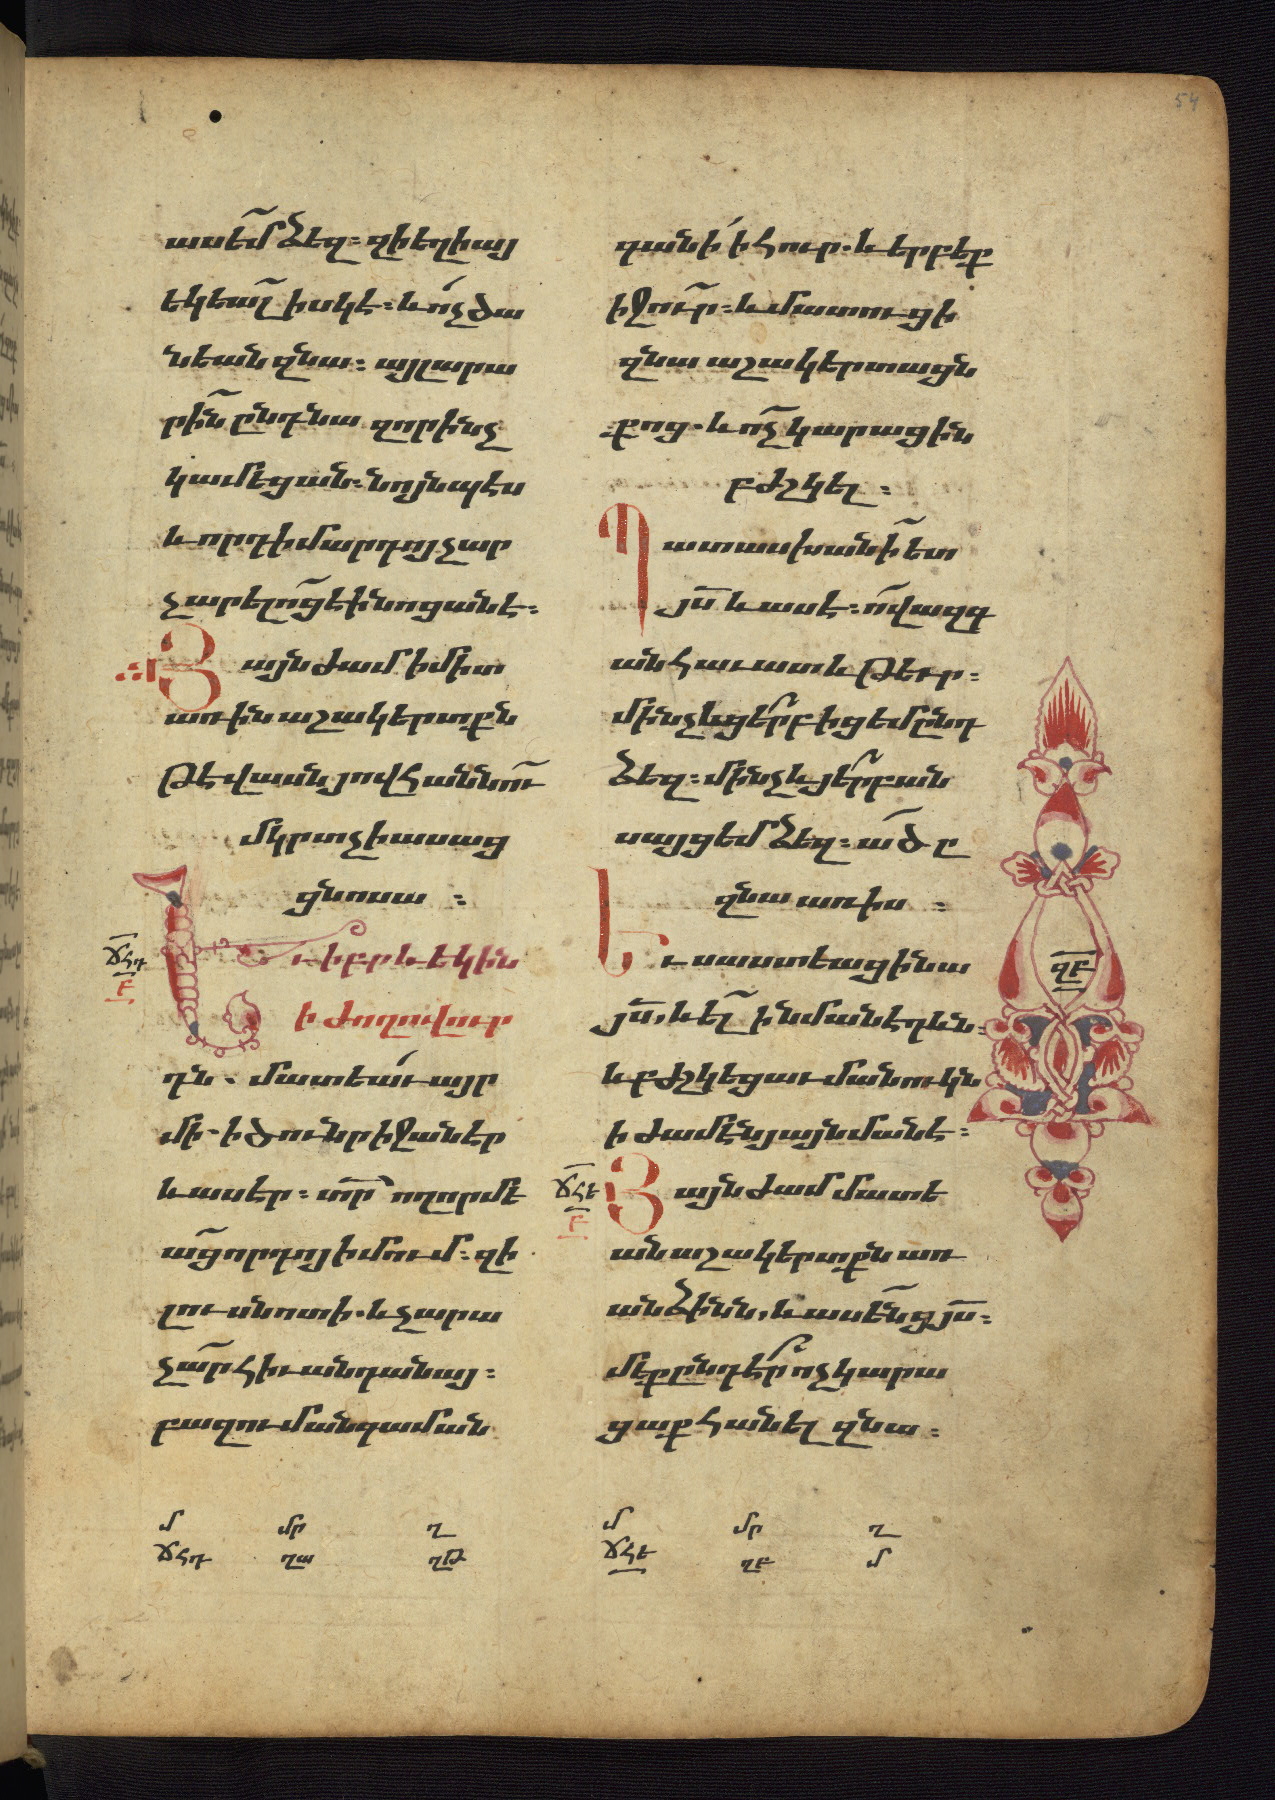 54
ասե՜մ ձեզ։ զի եղիայ
եկեա՜լ իսկ է։ և ո՛չ ծա
նեան զնա։ այլ արա
րի՜ն ընդ նա զոր ինչ
կամեցան։ նոյնպէս
և որդի մարդոյ չար
չարելո՜ց է ի նոցանէ։
Յայնժամ ի միտ
առին աշակերտքն
թէ վասն յովհաննո՜ւ
մկրտչի ասաց
ցնոսա ։
ՃՀԴ
Բ
Եւ իբրև եկին
ի ժողովուր
դն. մատեա՛ւ այր
մի. ի ծունր իջանէր
և ասէր։ տր՜ ողորմէ
ա՜ց որդոյ իմում։ զի
լուսնոտի. և չարա
չա՜ր հիւանդանայ։
բազում անգամ ան
գանի՛ ի հուր. և երբեք
ի ջո՜ւր։ և մատուցի
զնա աշակերտացն
քոց. և ո՜չ կարացին
բժշկել ։
Պատասխանի՜ ետ
յս՜ և ասէ։ ո՜վ ազգ
անհաւատ և թեւր։
մինչև ցե՞րբ իցեմ ընդ
ձեզ։ մինչև յե՞րբ ան
սայցեմ ձեզ։ ա՜ծ ը
զնա առ իս ։
ԶԲ
Եւ սաստեաց ի նա
յս՜, և ե՜լ ի նմանէ դևն։
և բժշկեցաւ մանուկն
ի ժամէն յայնմանէ։
ՃՀԵ
Բ
Յայնժամ մատե
ան աշակերտքն առ
անձինն, և ասե՜ն ցյս՜։
մեք ընդե՞ր ոչ կարա
ցաք հանել զնա։
մ մր ղ
ՃՀԴ ղա ղթ
մ մր ղ
ՃՀԵ ղբ մ